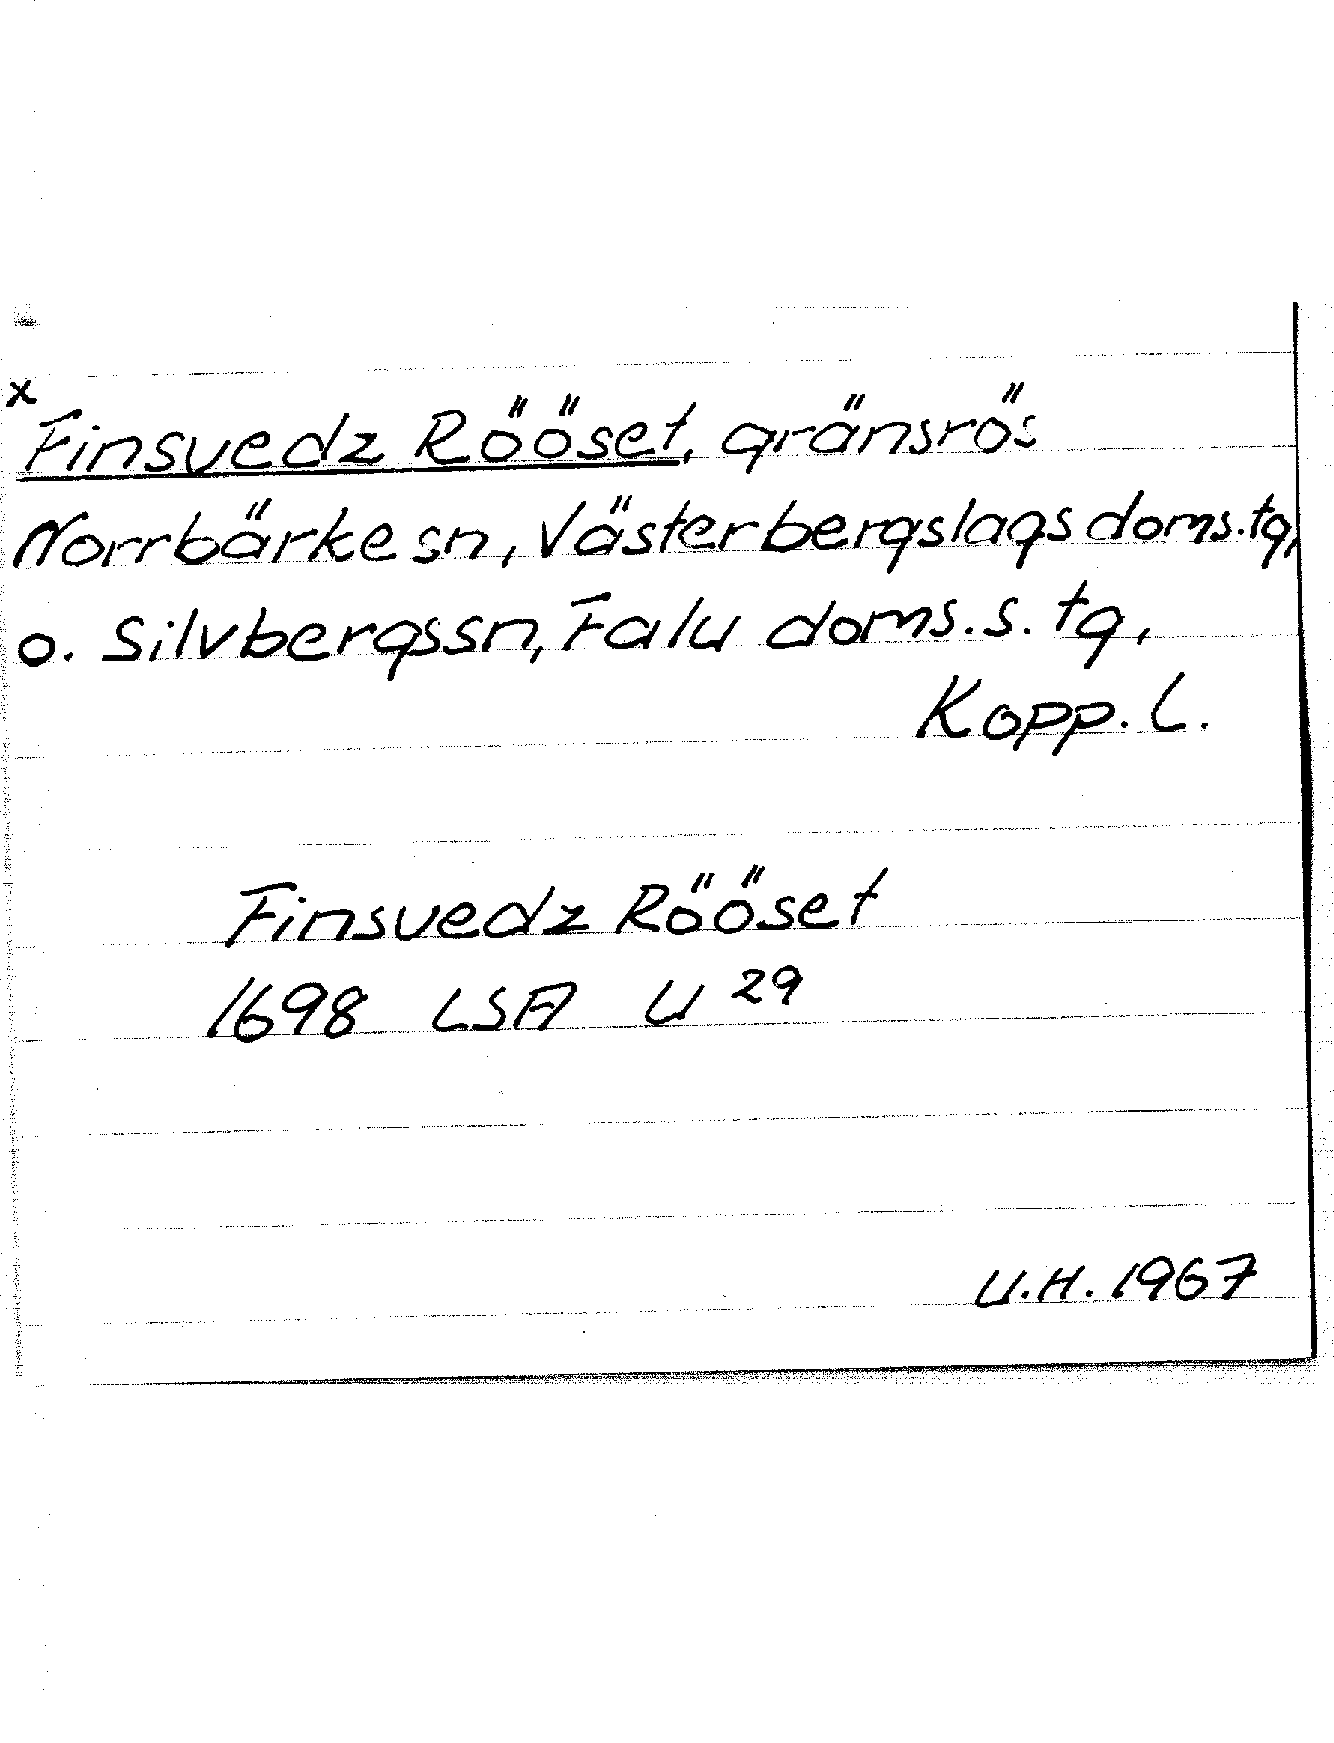 x
Finsuedz Rööset, gränsrös
Norrbärke sn, Västerbergslags doms.tg,
o. Silvbergssn, Falu doms.s. tg,
Kopp. L.
Finsuedz Rööset
1698 LSA U 29
U.H. 1967